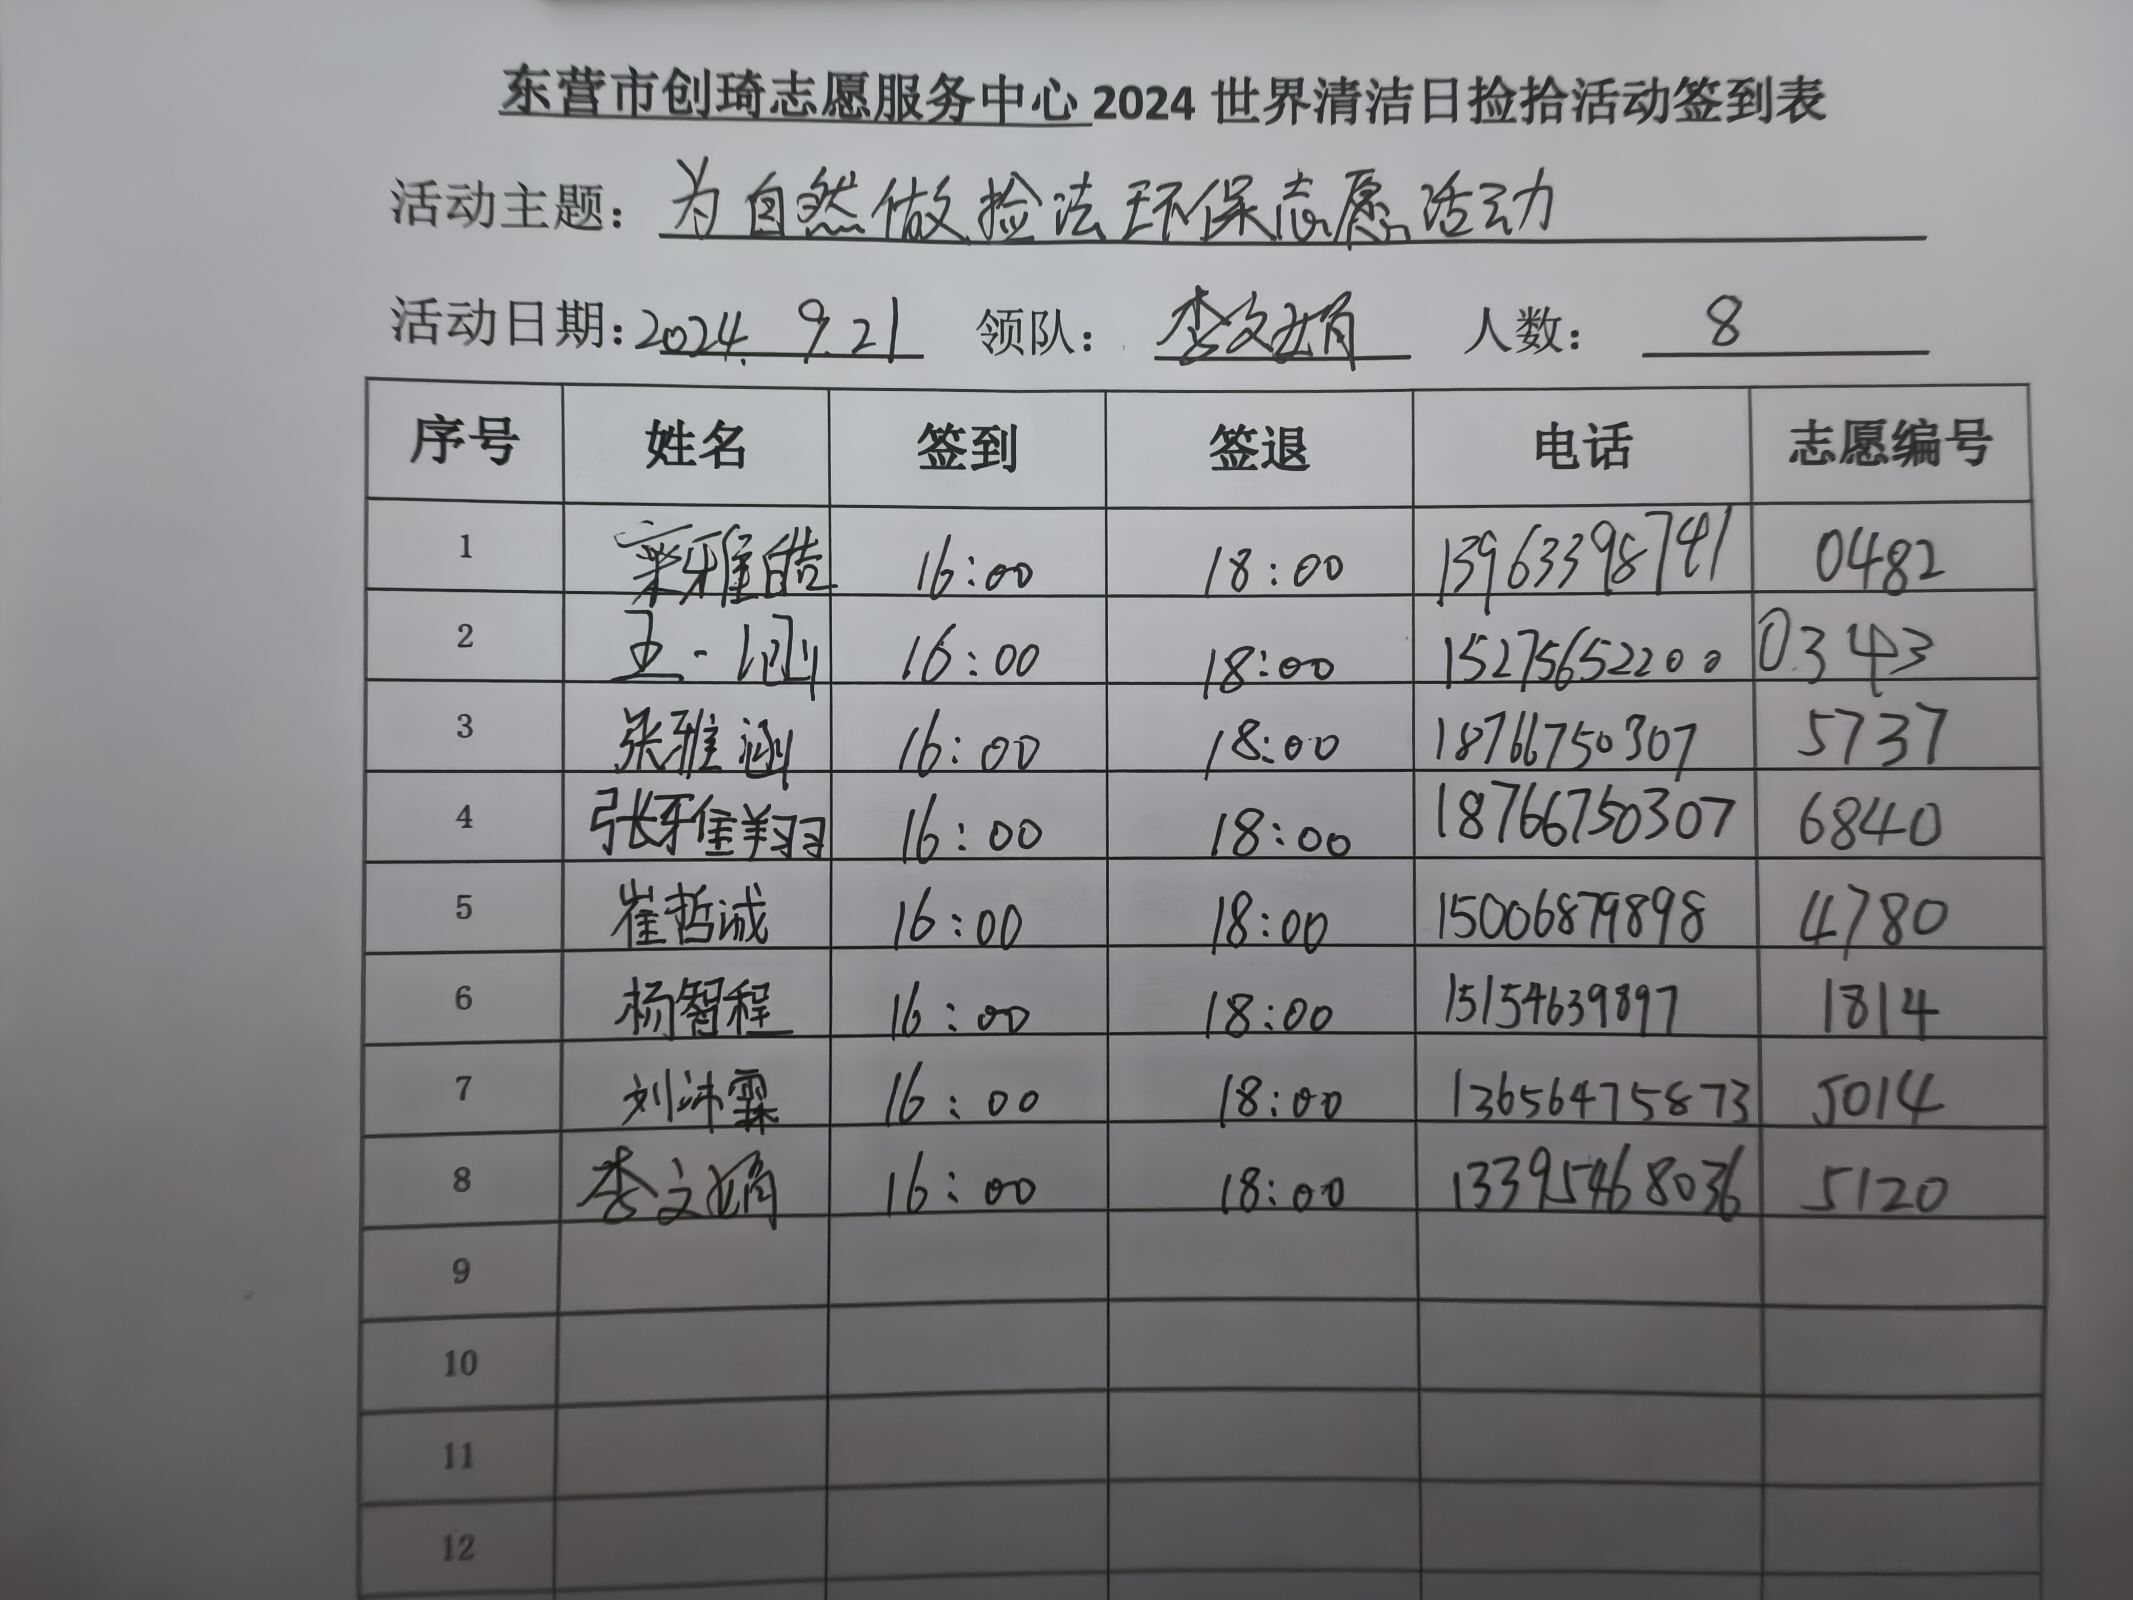 东营市创琦志愿服务中心 2024 世界清洁日捡拾活动签到表
活动主题: 为自然做捡法环保志愿活动
活动日期: 2024. 9.21 领队: 李文娟 人数: 8
序号 姓名 签到 签退 电话 志愿编号
1 雅皓 16:00 18:00 13963398741 0482
2 王一涵 16:00 18:00 15275652200 0343
3 张雅涵 16:00 18:00 18766750307 5737
4 张雅翔 16:00 18:00 18766750307 6840
5 崔哲诚 16:00 18:00 15006879898 4780
6 杨智程 16:00 18:00 15154639897 1814
7 刘沛霖 16:00 18:00 13656475873 5014
8 李文娟 16:00 18:00 13395468036 5120
9
10
11
12